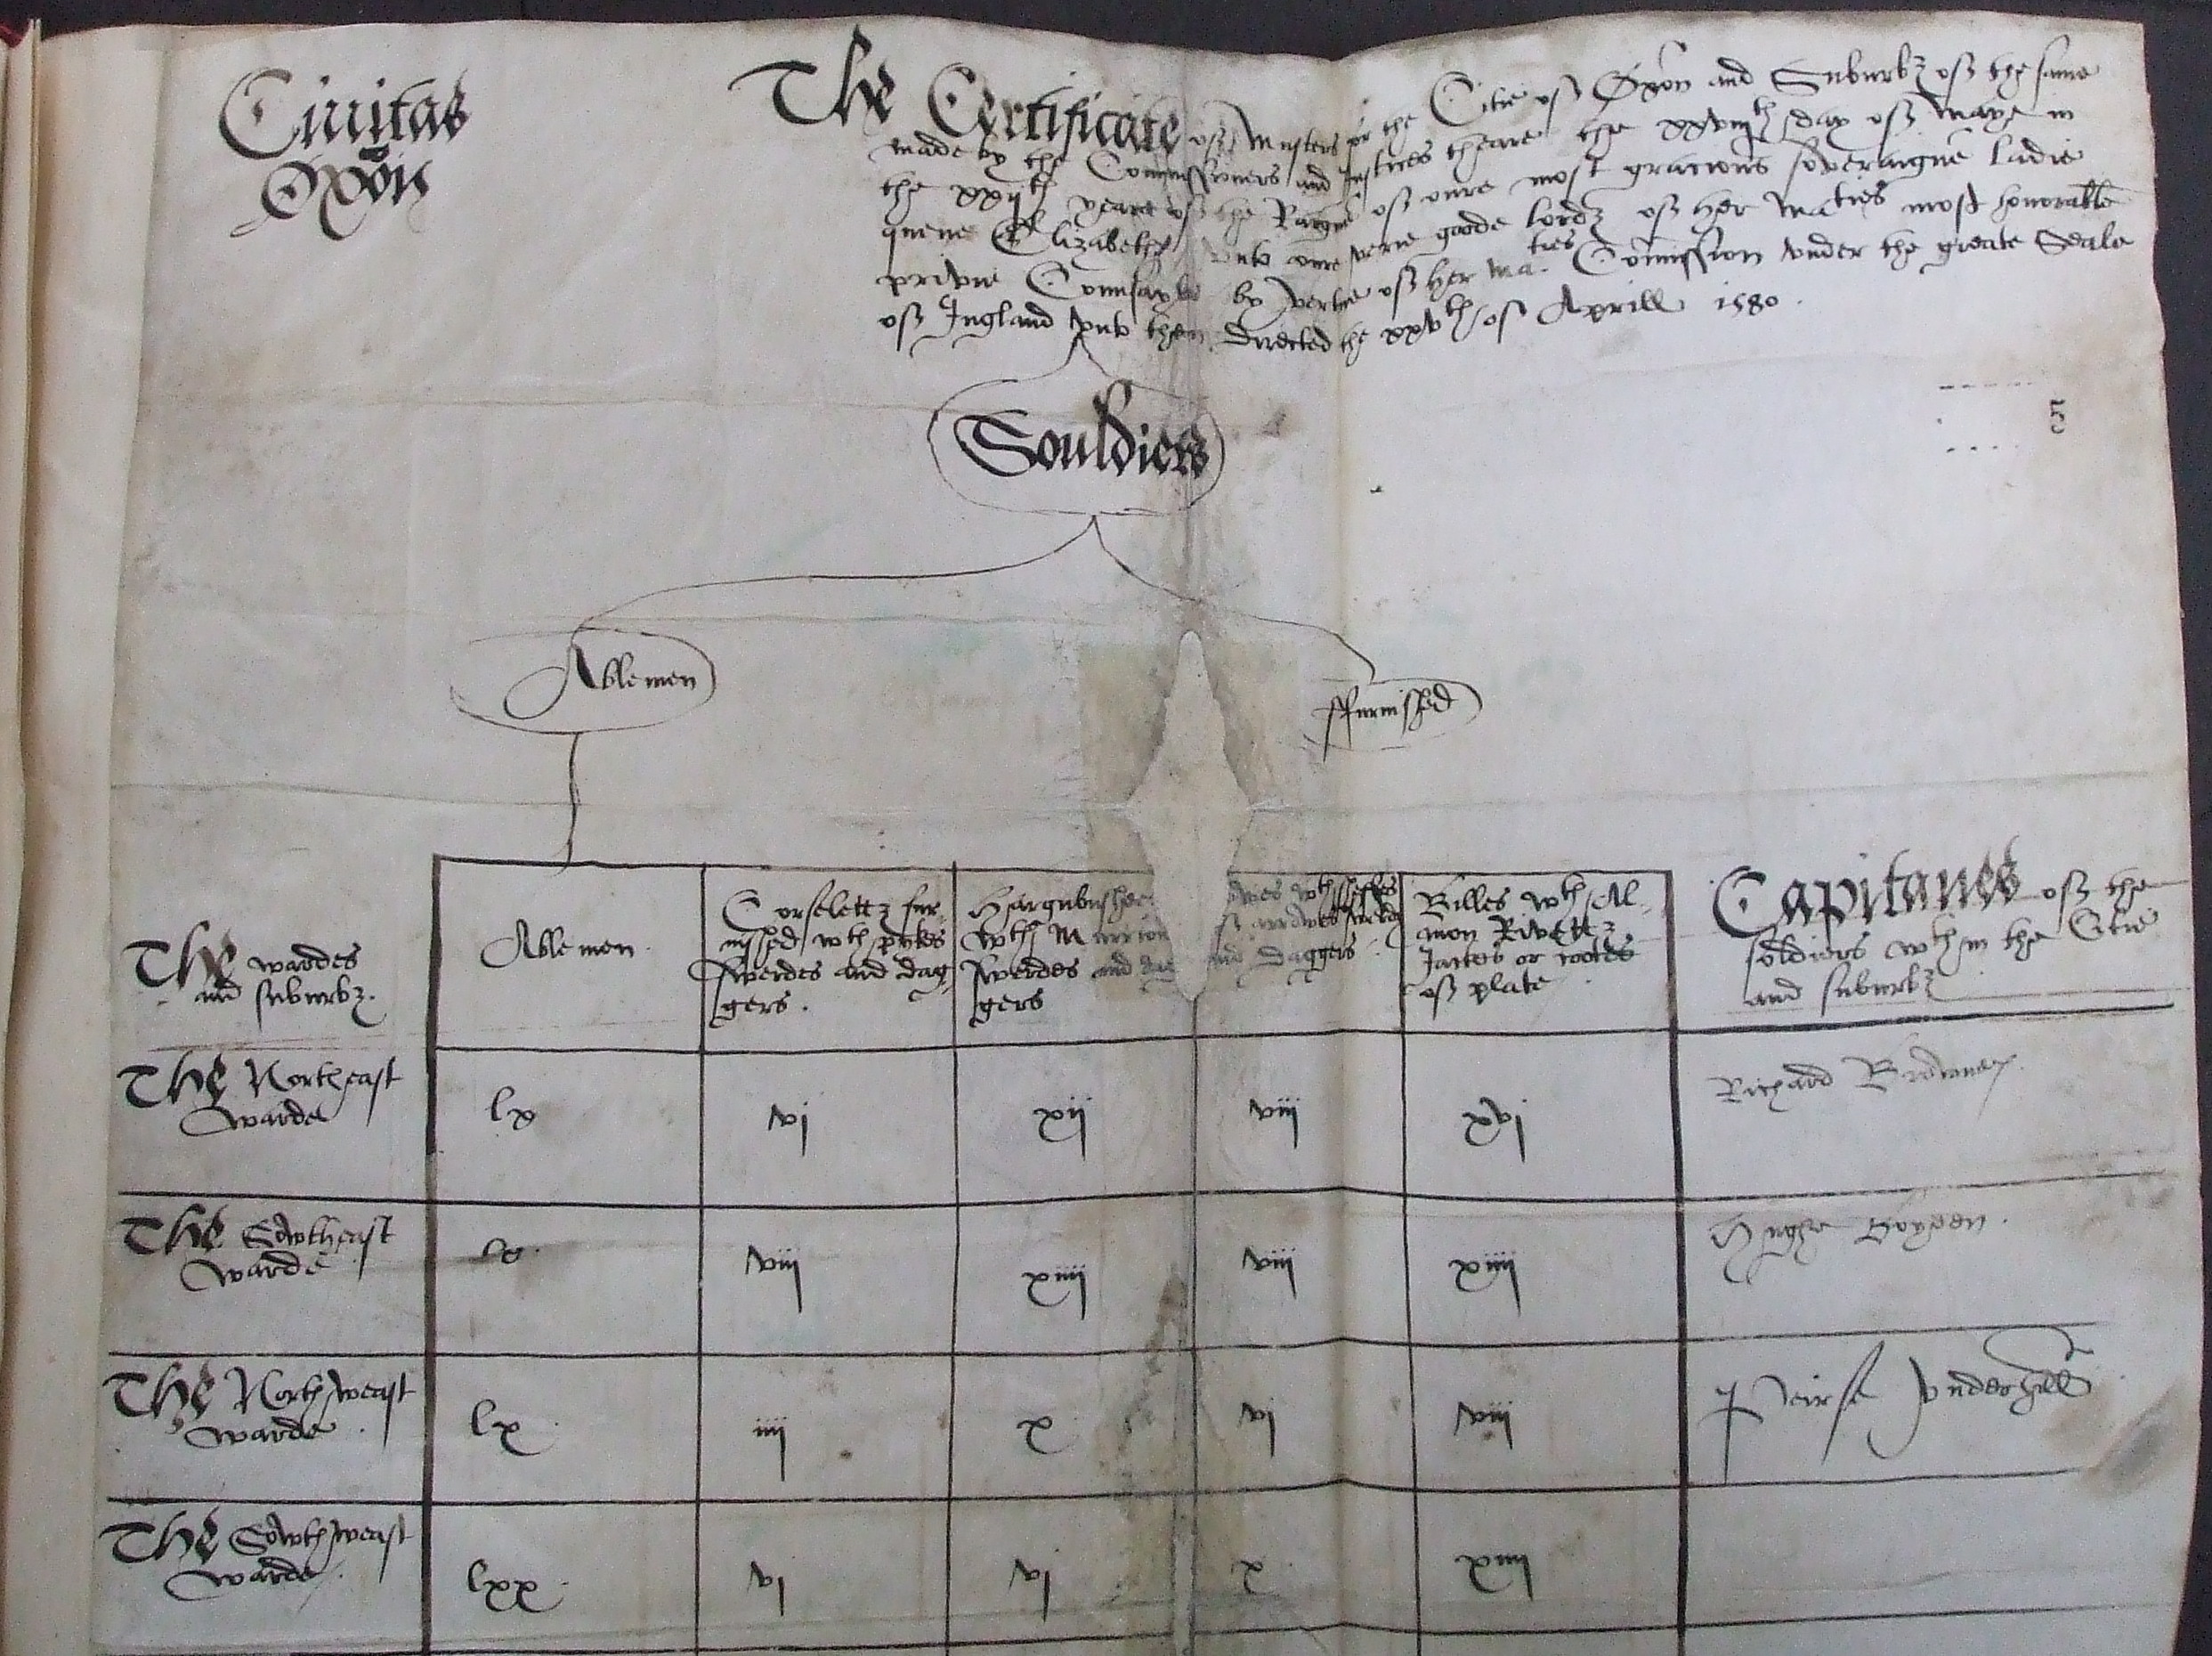 Civitas
Oxon
The Certificate off Musters for the Citie off Oxon and Suburbz off the same
made by the Commissioners and Justices theare the xxviijth day off Maye in
the xxijth yeare off the Raigne off oure most gracious soveraigne Ladie
quene Elizabeth, unto oure verie goode lordz off her Maties most honorable
privie Counsayle by vertue off her Ma.ties Comission vnder the greate Seale
off Ingland vnto them directed the xxvth of Aprill 1580.
5
Souldiers
Ablemen
ffurnished
The wardes
and suburbz.
Able men.
Corselettz fur-
nisshed wth pykes
swerdes and dag-
gers.
Hargubushes
wth Murrions
swerdes and dag
gers
wth sheffes
off arrowes swerdes
and daggers.
Billes wth Al-
mon Rivettz
Jackes or cootes
off plate
Capitanes off the
soldiers wthin the Citie
and suburbz
The Northeast
warde
lx
vj
xij
viij
xvj
Richard
The Sowtheast
warde
lx.
viij
xiiij
viij
xiiij
Hughe
The Northweast
warde.
lx
iiij
x
vj
viij
Peirse Vnderhill
The Sowthweast
warde.
lxx.
vj
vj
x.
xiiij